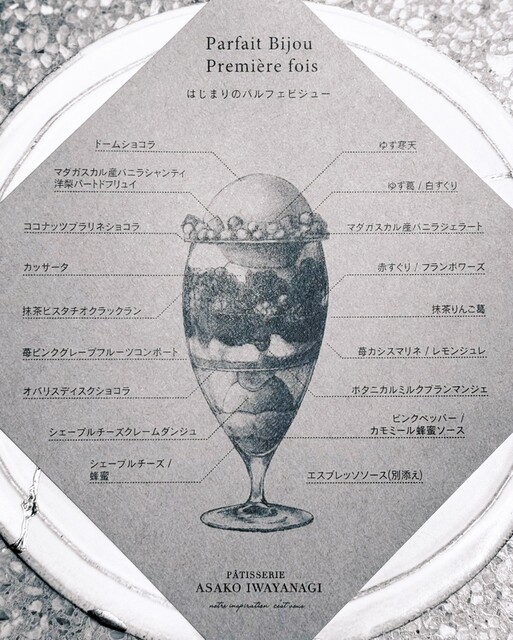 Parfait Bijou
Première fois
はじまりのパルフェビジュー
ドームショコラ
マダガスカル産バニラシャンティ
洋梨パートドフリュイ
ココナッツプラリネショコラ
カッサータ
抹茶ピスタチオクラックラン
苺ピンクグレープフルーツコンポート
オパリスディスクショコラ
シェーブルチーズクレームダンジュ
シェーブルチーズ /
蜂蜜
ゆず寒天
ゆず葛 / 白すぐり
マダガスカル産バニラジェラート
赤すぐり / フランボワーズ
抹茶りんご葛
苺カシスマリネ / レモンジュレ
ボタニカルミルクブランマンジェ
ピンクペッパー /
カモミール蜂蜜ソース
エスプレッソソース(別添え)
PÂTISSERIE
ASAKO IWAYANAGI
notre inspiration c'est vous